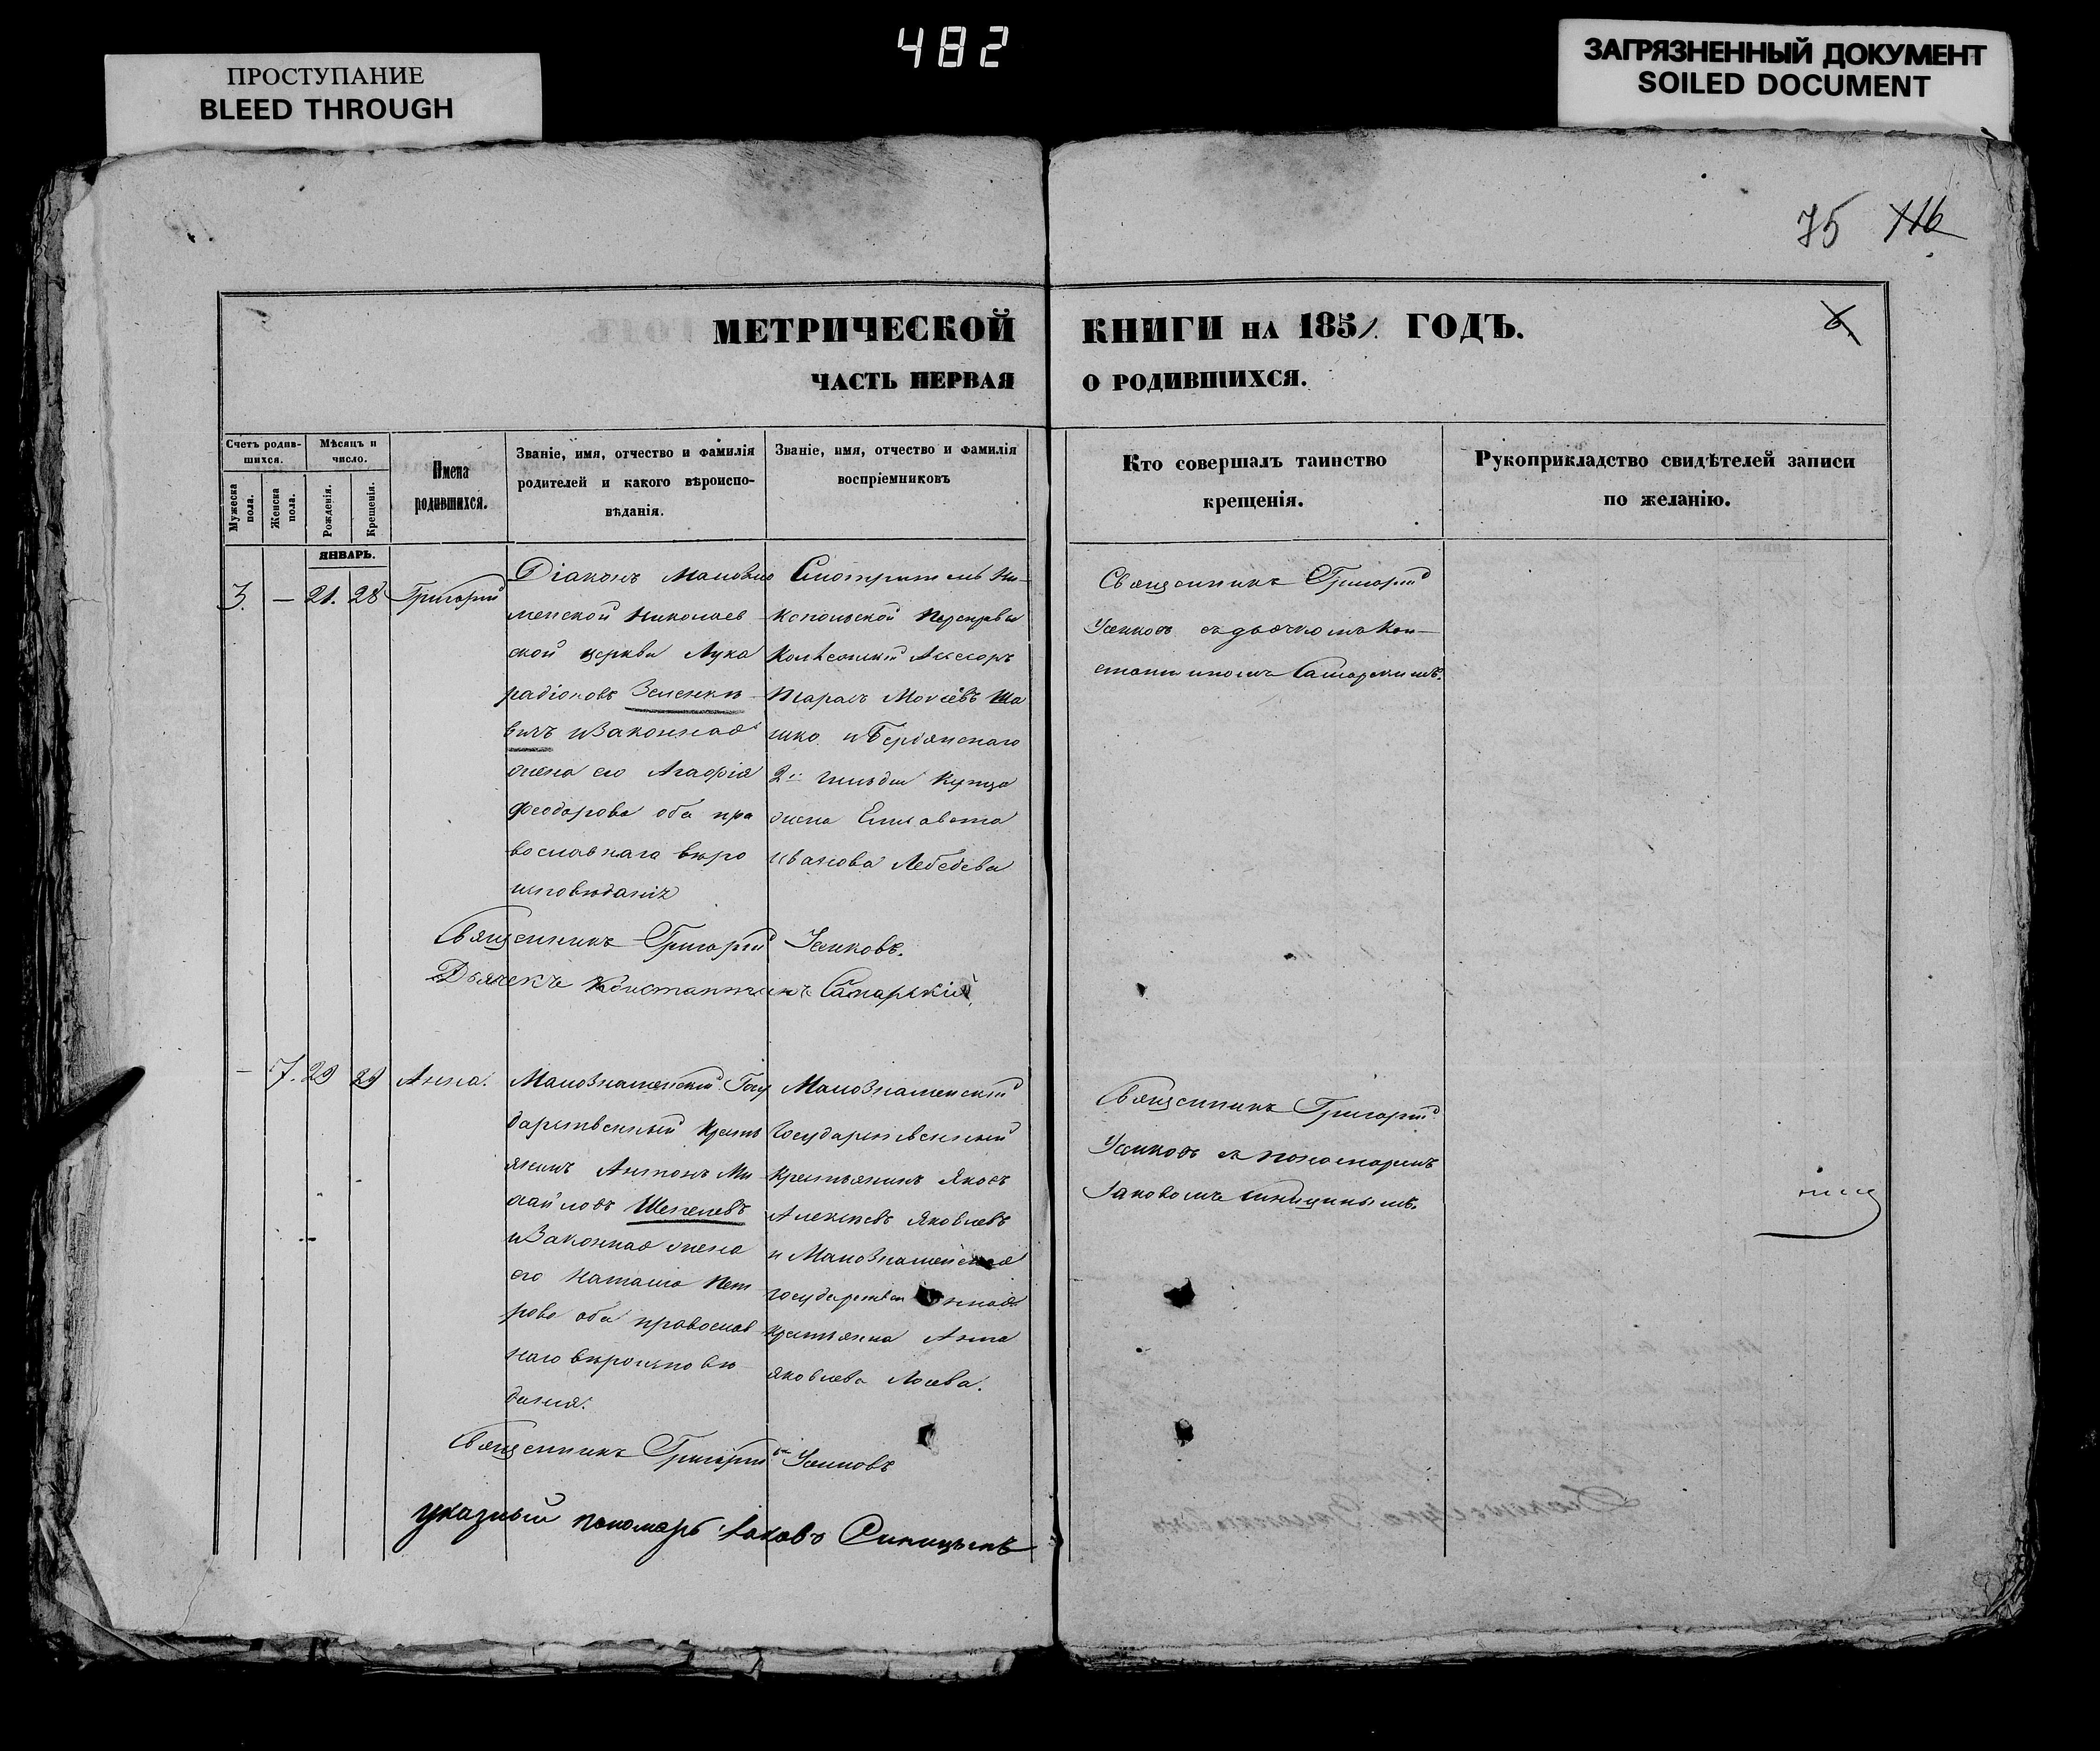 482
ПРОСТУПАНИЕ
BLEED THROUGH
ЗАГРЯЗНЕННЫЙ ДОКУМЕНТ
SOILED DOCUMENT
75 116
МЕТРИЧЕСКОЙ КНИГИ НА 1851. ГОДЪ.
6
ЧАСТЬ ПЕРВАЯ О РОДИВШИХСЯ.
Счетъ родив-
шихся.
Мужеска пола.
Женска пола.
Мѣсяцъ и
число.
Рожденія.
Крещенія.
Имена
родившихся.
Званіе, имя, отчество и фамилія
родителей и какого вѣроиспо-
вѣданія.
Званіе, имя, отчество и фамилія
воспріемниковъ
Кто совершалъ таинство
крещенія.
Рукоприкладство свидѣтелей записи
по желанію.
ЯНВАРЬ.
3. — 21. 28 Григорій
Діаконъ Малозна
менской Николаев
ской церкви Лука
радіоновъ Зеленке
вичъ и Законная
жена его Агафія
Феодорова оба пра
вославнаго вѣро
исповѣданія
Смотритель Ни-
Копольской Переправы
Колѣсскій Ассесоръ
Тарасъ Моѵсеѣвъ
и Бердянскаго
2й гильдіи Купца
жена Елисавета
Иванова Лебедева
Священникъ Григорій
Усиковъ съ дьячкомъ Кон-
стантиномъ Самарскимъ.
Священникъ Григорій Усиковъ.
Дьячекъ Константинъ Самарскій
— 7. 29 29 Анна.
Малознаменскій Госу
дарственный Кресть
янинъ Антонъ Ми
хайловъ Шепелевъ
и Законная жена
его Наталія Пет
рова оба православ
наго вѣроисповѣ
данія.
Малознаменскій
Государственный
Крестьянинъ Яковъ
Алексѣевъ Яковлевъ
и Малознаменская
государственная
Крестьянка Анна
Яковлева Лосева.
Священникъ Григорій
Усиковъ съ пономаремъ
Іаковомъ Синицинымъ.
Священникъ Григорій Усиковъ
указный пономарь Іаковъ Синицынъ